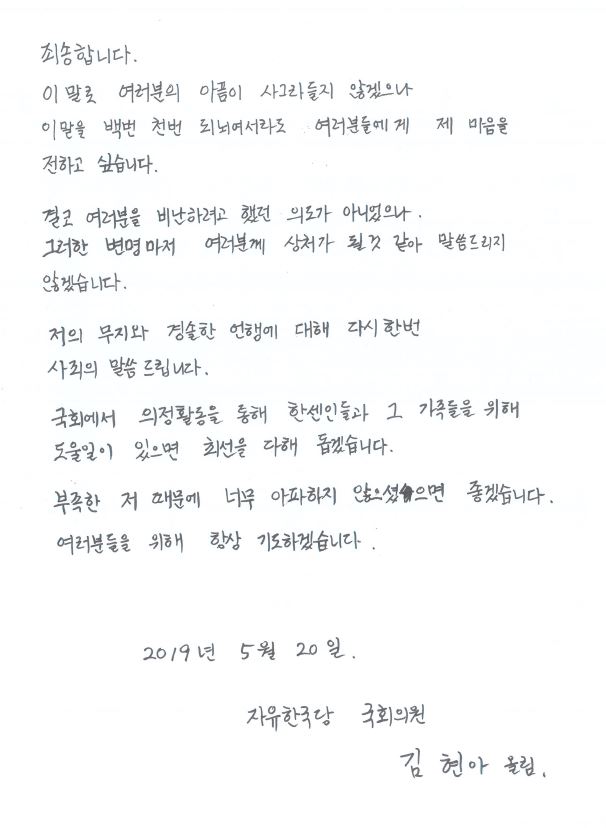 죄송합니다.
이 말로 여러분의 아픔이 사그라들지 않겠으나
이말을 백번 천번 되뇌여서라도 여러분들에게 제 마음을
전하고 싶습니다.
결코 여러분을 비난하려고 했던 의도가 아니었으나.
그러한 변명마저 여러분께 상처가 될것 같아 말씀드리지
않겠습니다.
저의 무지와 경솔한 언행에 대해 다시한번
사죄의 말씀 드립니다.
국회에서 의정활동을 통해 한센인들과 그 가족들을 위해
도울일이 있으면 최선을 다해 돕겠습니다.
부족한 저 때문에 너무 아파하지 않으셨으면 좋겠습니다.
여러분들을 위해 항상 기도하겠습니다.
2019년 5월 20일.
자유한국당 국회의원
김현아 올림.